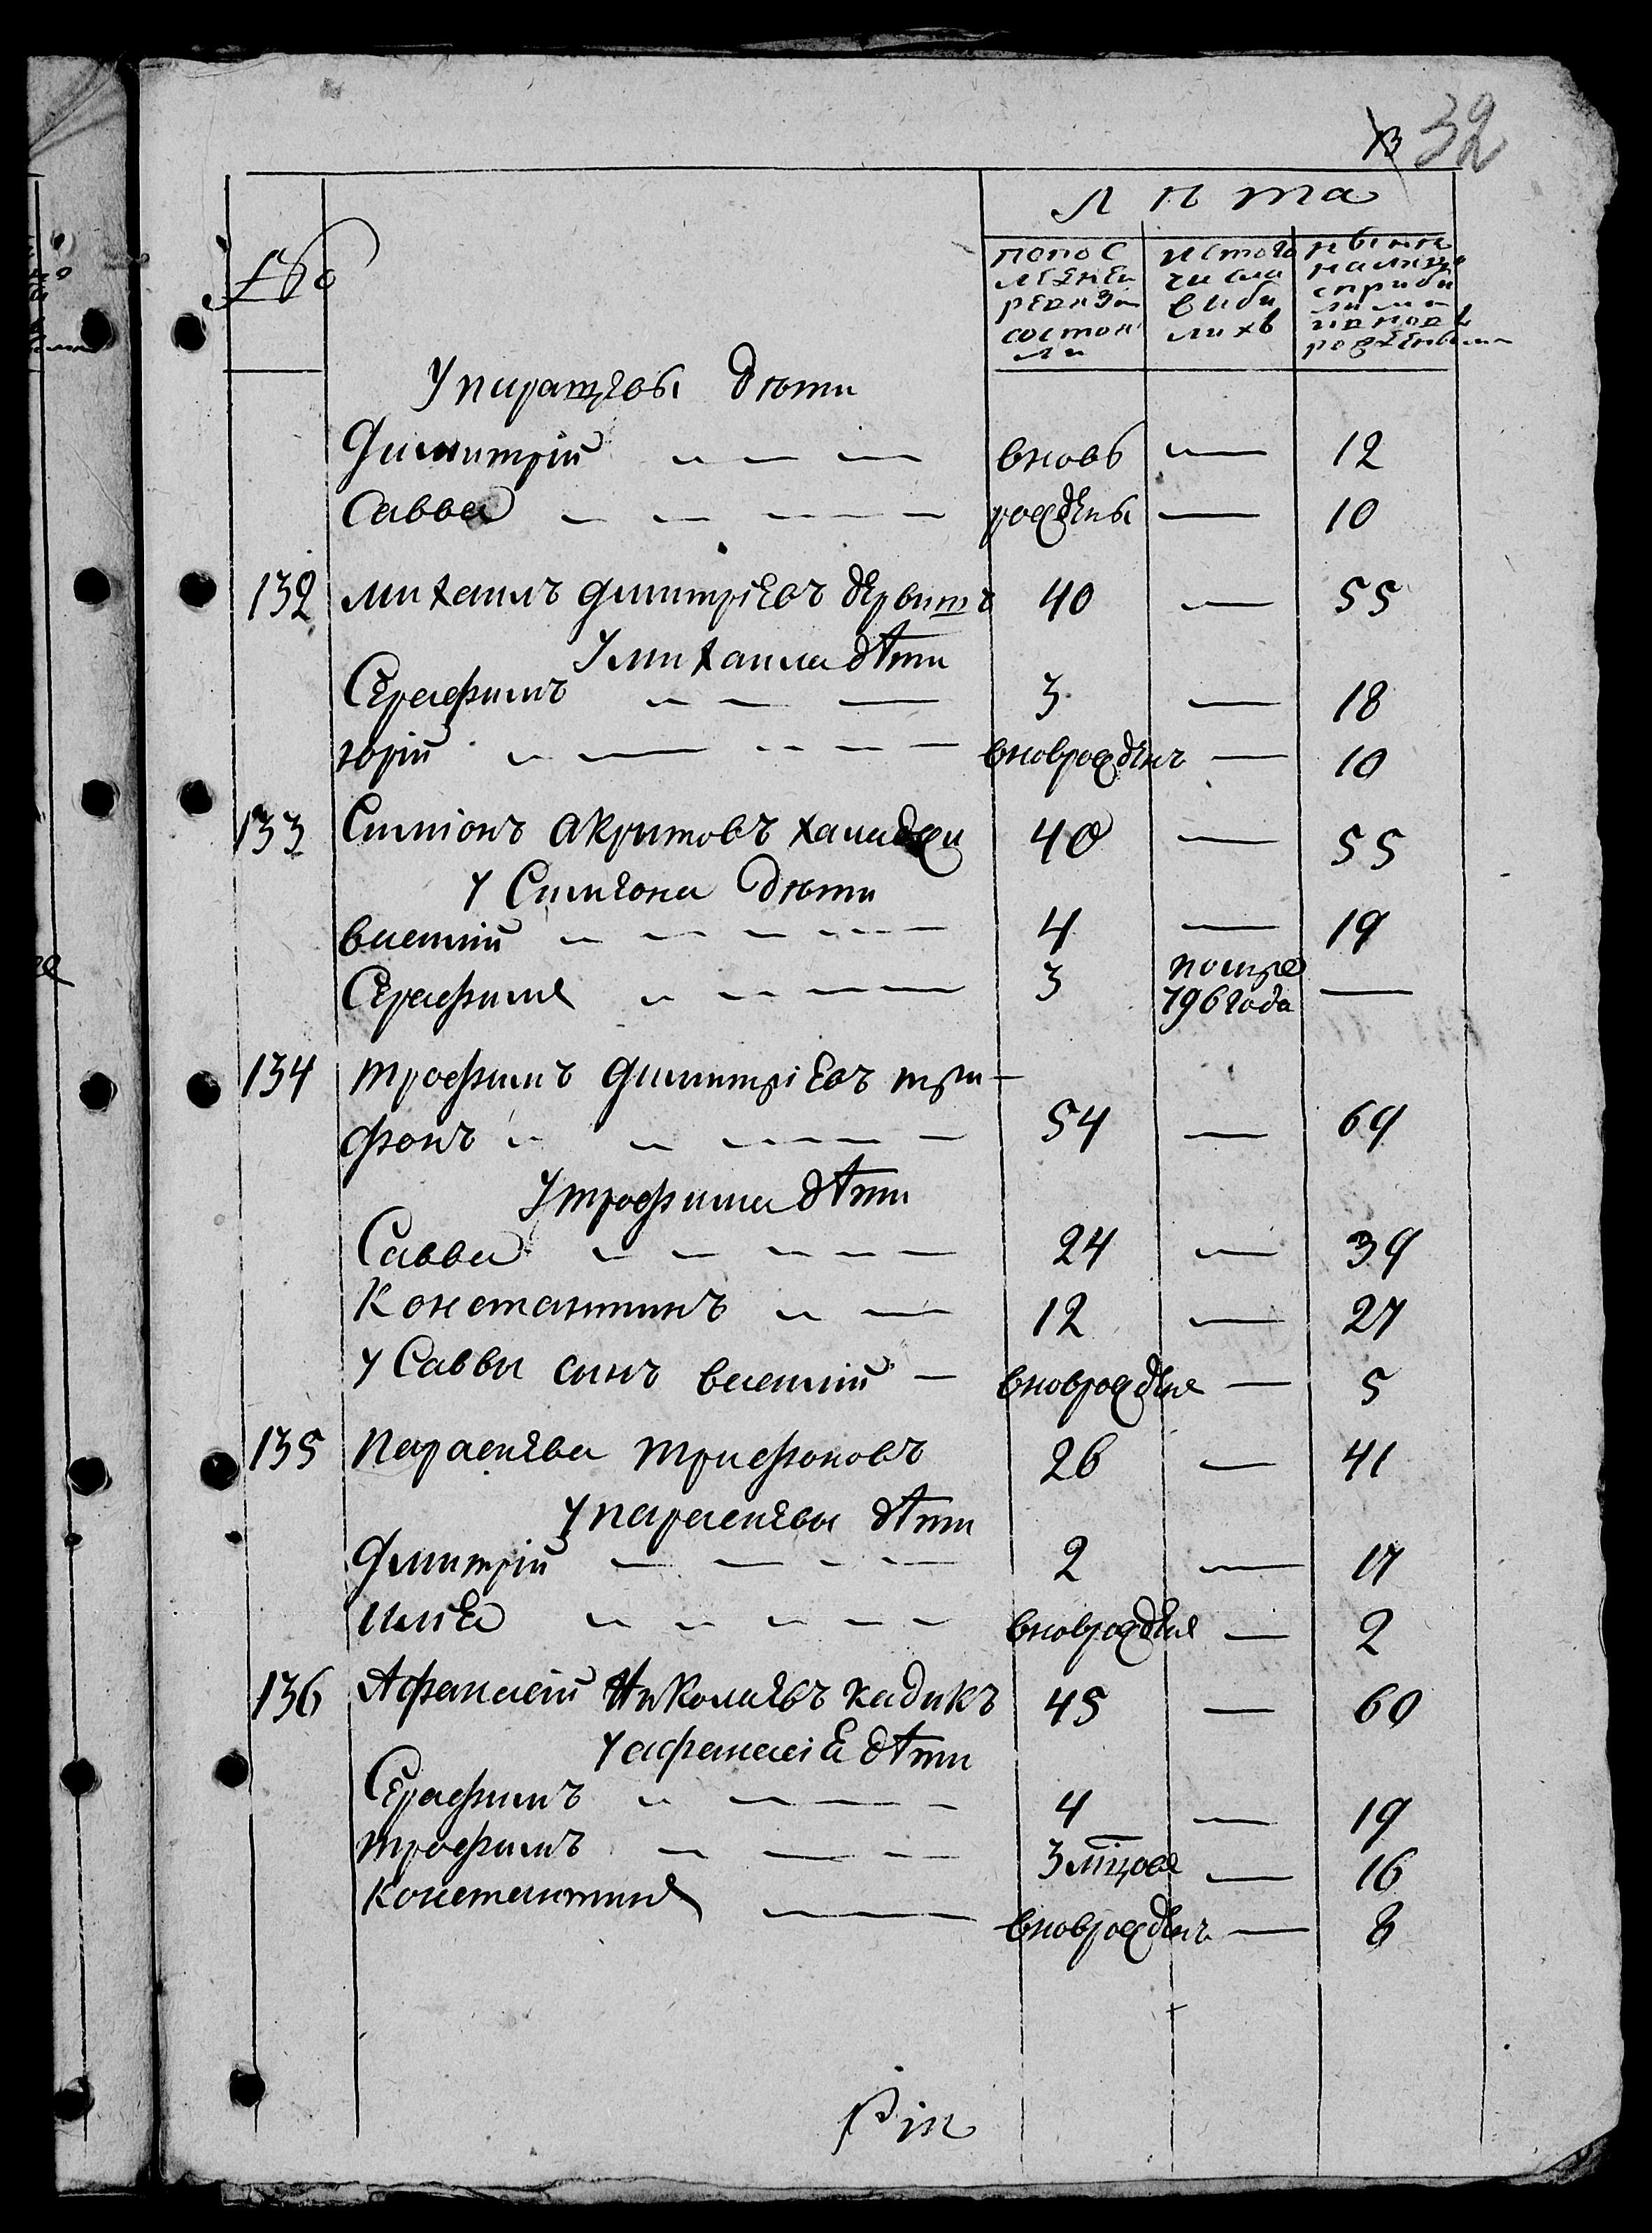 13 32
№
лѣта
попос
лѣдней
ревизіи
состоя
ли
истого
числа
выбы
лихъ
нынѣ
налицо
сприбы
лыми
ивновь
рожденными
У пиратевы дѣти
Димитрій вновь — 12
Савва рождены — 10
132 михаилъ димитріевъ дервишъ 40 — 55
У михаила дѣти
Серафимъ 3 — 18
юрій вноврожденъ — 10
133 Симіонъ акритовъ халиджи 40 — 55
у Симеона дѣти
василій 4 — 19
Серафимъ 3 помре —
796 года
134 трофимъ димитріевъ три-
фонъ 54 — 69
У трофима дѣти
Савва 24 — 39
Константинъ 12 — 27
у Саввы сынъ василій — вноврожденъ — 5
135 параскева трифоновъ 26 — 41
у параскевы дѣти
Димитрій 2 — 17
илія вноврожденъ — 2
136 Афанасій Николаевъ кадикъ 45 — 60
у афанасіа дѣти
Серафимъ 4 — 19
трофимъ 3 мцовъ — 16
Константинъ вноврожденъ — 8